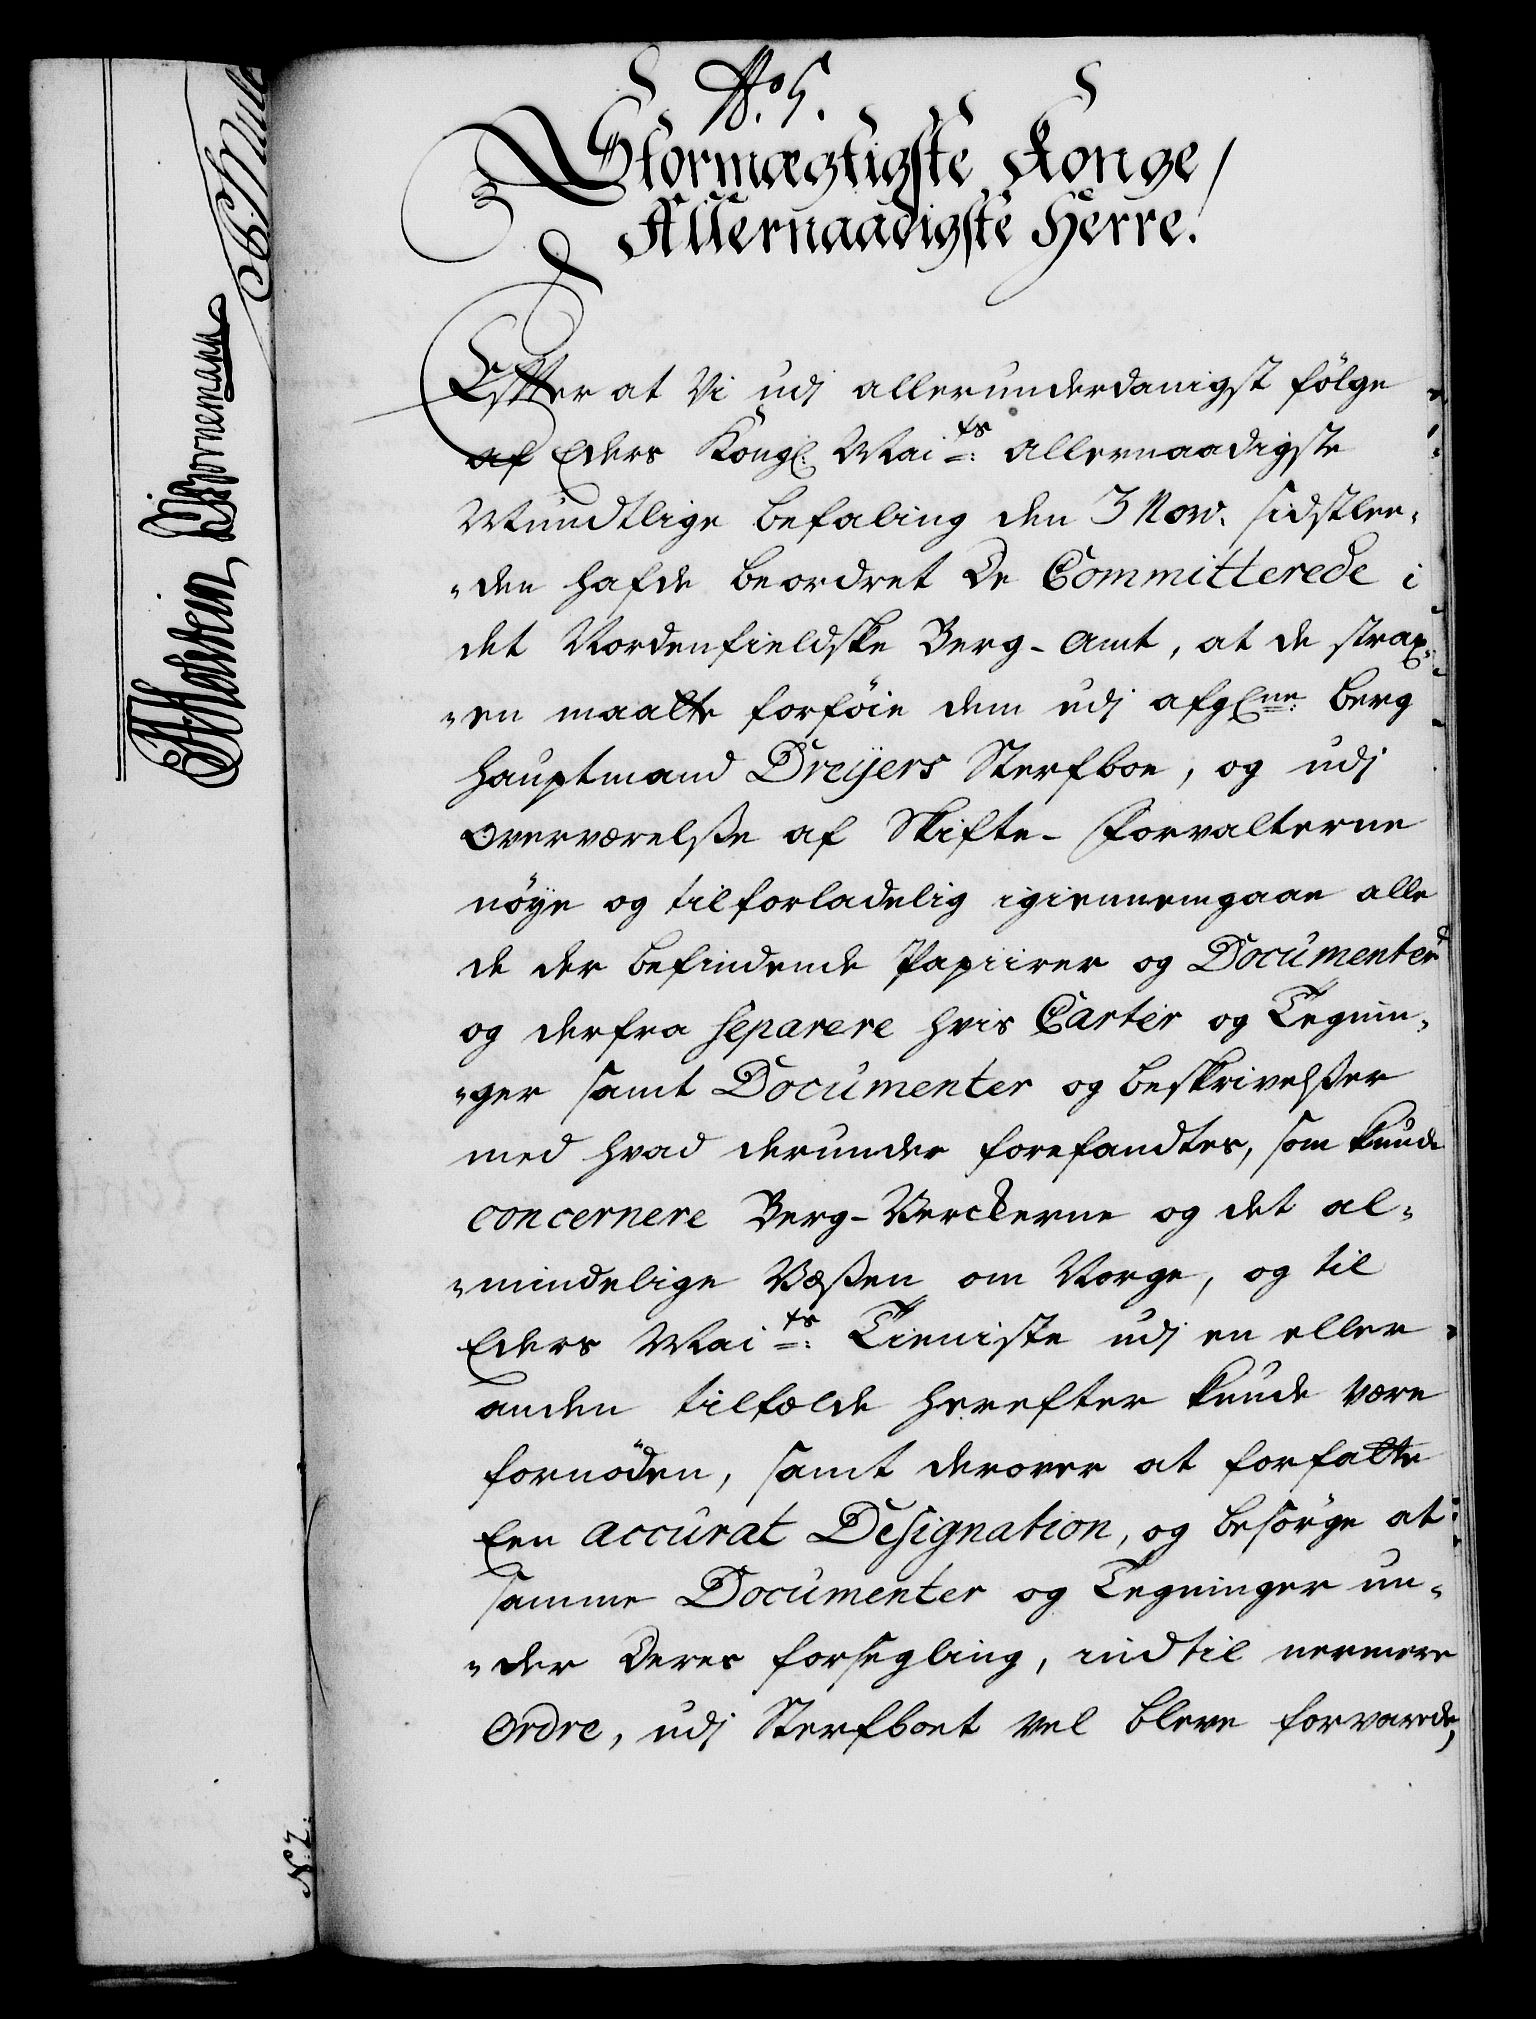 No. 5.
Stormægtigste Konge/
Allernaadigste Herre!
Effter at Vi udj allerunderdanigst følge
af Eders Kongl: Mai ts: allernaadigste
Mundtlige befaling den 3 Nov. sidstlee-
-den hafde beordret De Committerede i
det Nordenfieldske Berg-Amt, at de strax-
-en maatte forføie dem udj afgl ne: Berg
Hauptmand Dreÿers Sterfboe, og udj
Overværelsse af Skifte-Forvalterne
nöye og tilforladelig igiennemgaae alle
de der befindende Papiirer og Documenter
og derfra separere hvis Carter og Tegnin-
-ger samt Documenter og beskrivelsser
med hvad derunder forefandtes, som kunde
concernere Berg-Verckerne og det al-
-mindelige Væssen om Norge, og til
Eders Mai ts: Tieniste udj en eller
anden tilfælde herefter kunde være
fornöden, samt derover at forfatte
Een accurat Designation, og besörge at
samme Documenter og Tegninger un-
-der Deres forsegling, indtil nermere
Ordre, udj Sterfboet vel bleve forvarede,
Bornemann
N: 2.